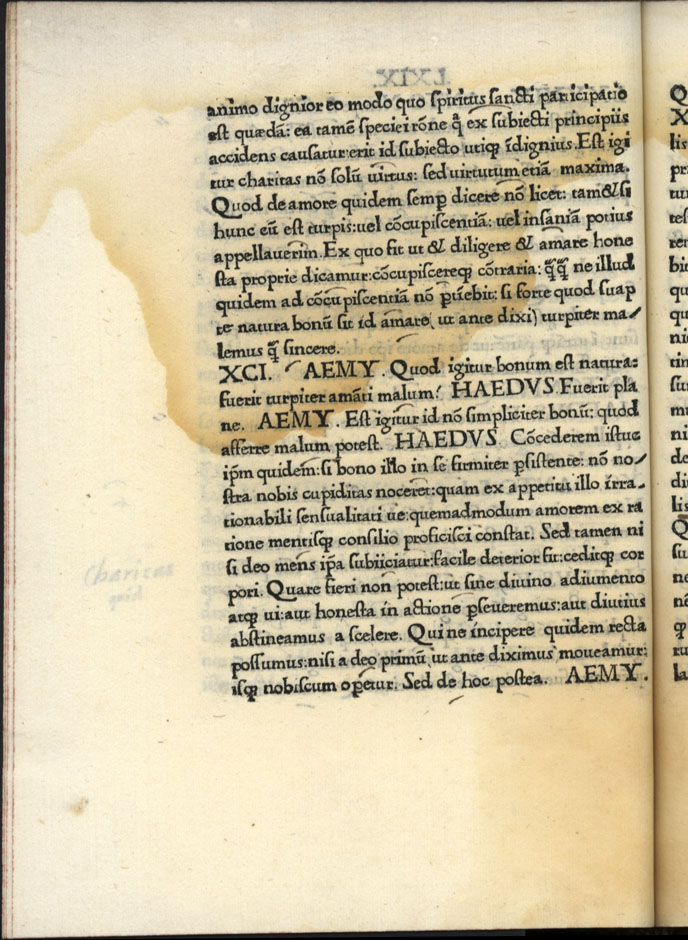 animo dignior eo modo quo spiritus sancti participatio
est quædā: ea tamē speciei rōne q̄ ex subiecti principiis
accidens causatur: erit id subiecto utiqꝫ īdignius. Est igi
tur charitas nō solū uirtus: sed uirtutum etiā maxima.
Quod de amore quidem semꝑ dicere nō licet: tam&si
hunc cū est turpis: uel cōcupiscentiā: uel insaniā potius
appellauerim. Ex quo fit ut & diligere & amare hone
sta proprie dicamur: cōcupiscereqꝫ cōtraria: q̄q̄ ne illud
quidem ad cōcupiscentiā nō ꝑuēbit: si forte quod suaꝑ
te natura bonū sit id amare( ut ante dixi) turpiter ma/
lemus q̄ sincere.
XCI. AEMY. Quod igitur bonum est natura:
fuerit turpiter amāti malum? HAEDVS. Fuerit pla
ne. AEMY. Est igitur id nō simpliciter bonū: quod
afferre malum potest. HAEDVS. Cōcederem istuc
ip̄m quidem: si bono illo in se firmiter ꝑsistente: nō no/
stra nobis cupiditas noceret: quam ex appetitu illo irra/
tionabili sensualitati ue: quemadmodum amorem ex ra
tione mentisqꝫ consilio proficisci constat. Sed tamen ni
si deo mens ip̄a subiiciatur: facile deterior fit: ceditqꝫ cor
pori. Quare fieri non potest: ut sine diuino adiumento
atqꝫ ui: aut honesta in actione ꝑseueremus: aut diutius
abstineamus a scelere. Qui ne incipere quidem recta
possumus: nisi a deo primū( ut ante diximus) moueamur:
isqꝫ nobiscum oꝑetur. Sed de hoc postea. AEMY.
Charitas
quid